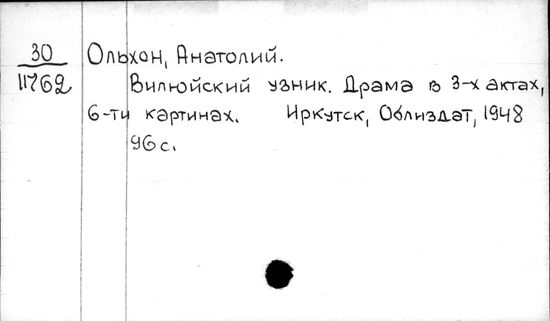 30 Ольхон, Анатолий.
11762 Вилюйский узник. Драма в 3-х актах,
6-ти картинах. Иркутск, Облиздат, 1948
96 с.